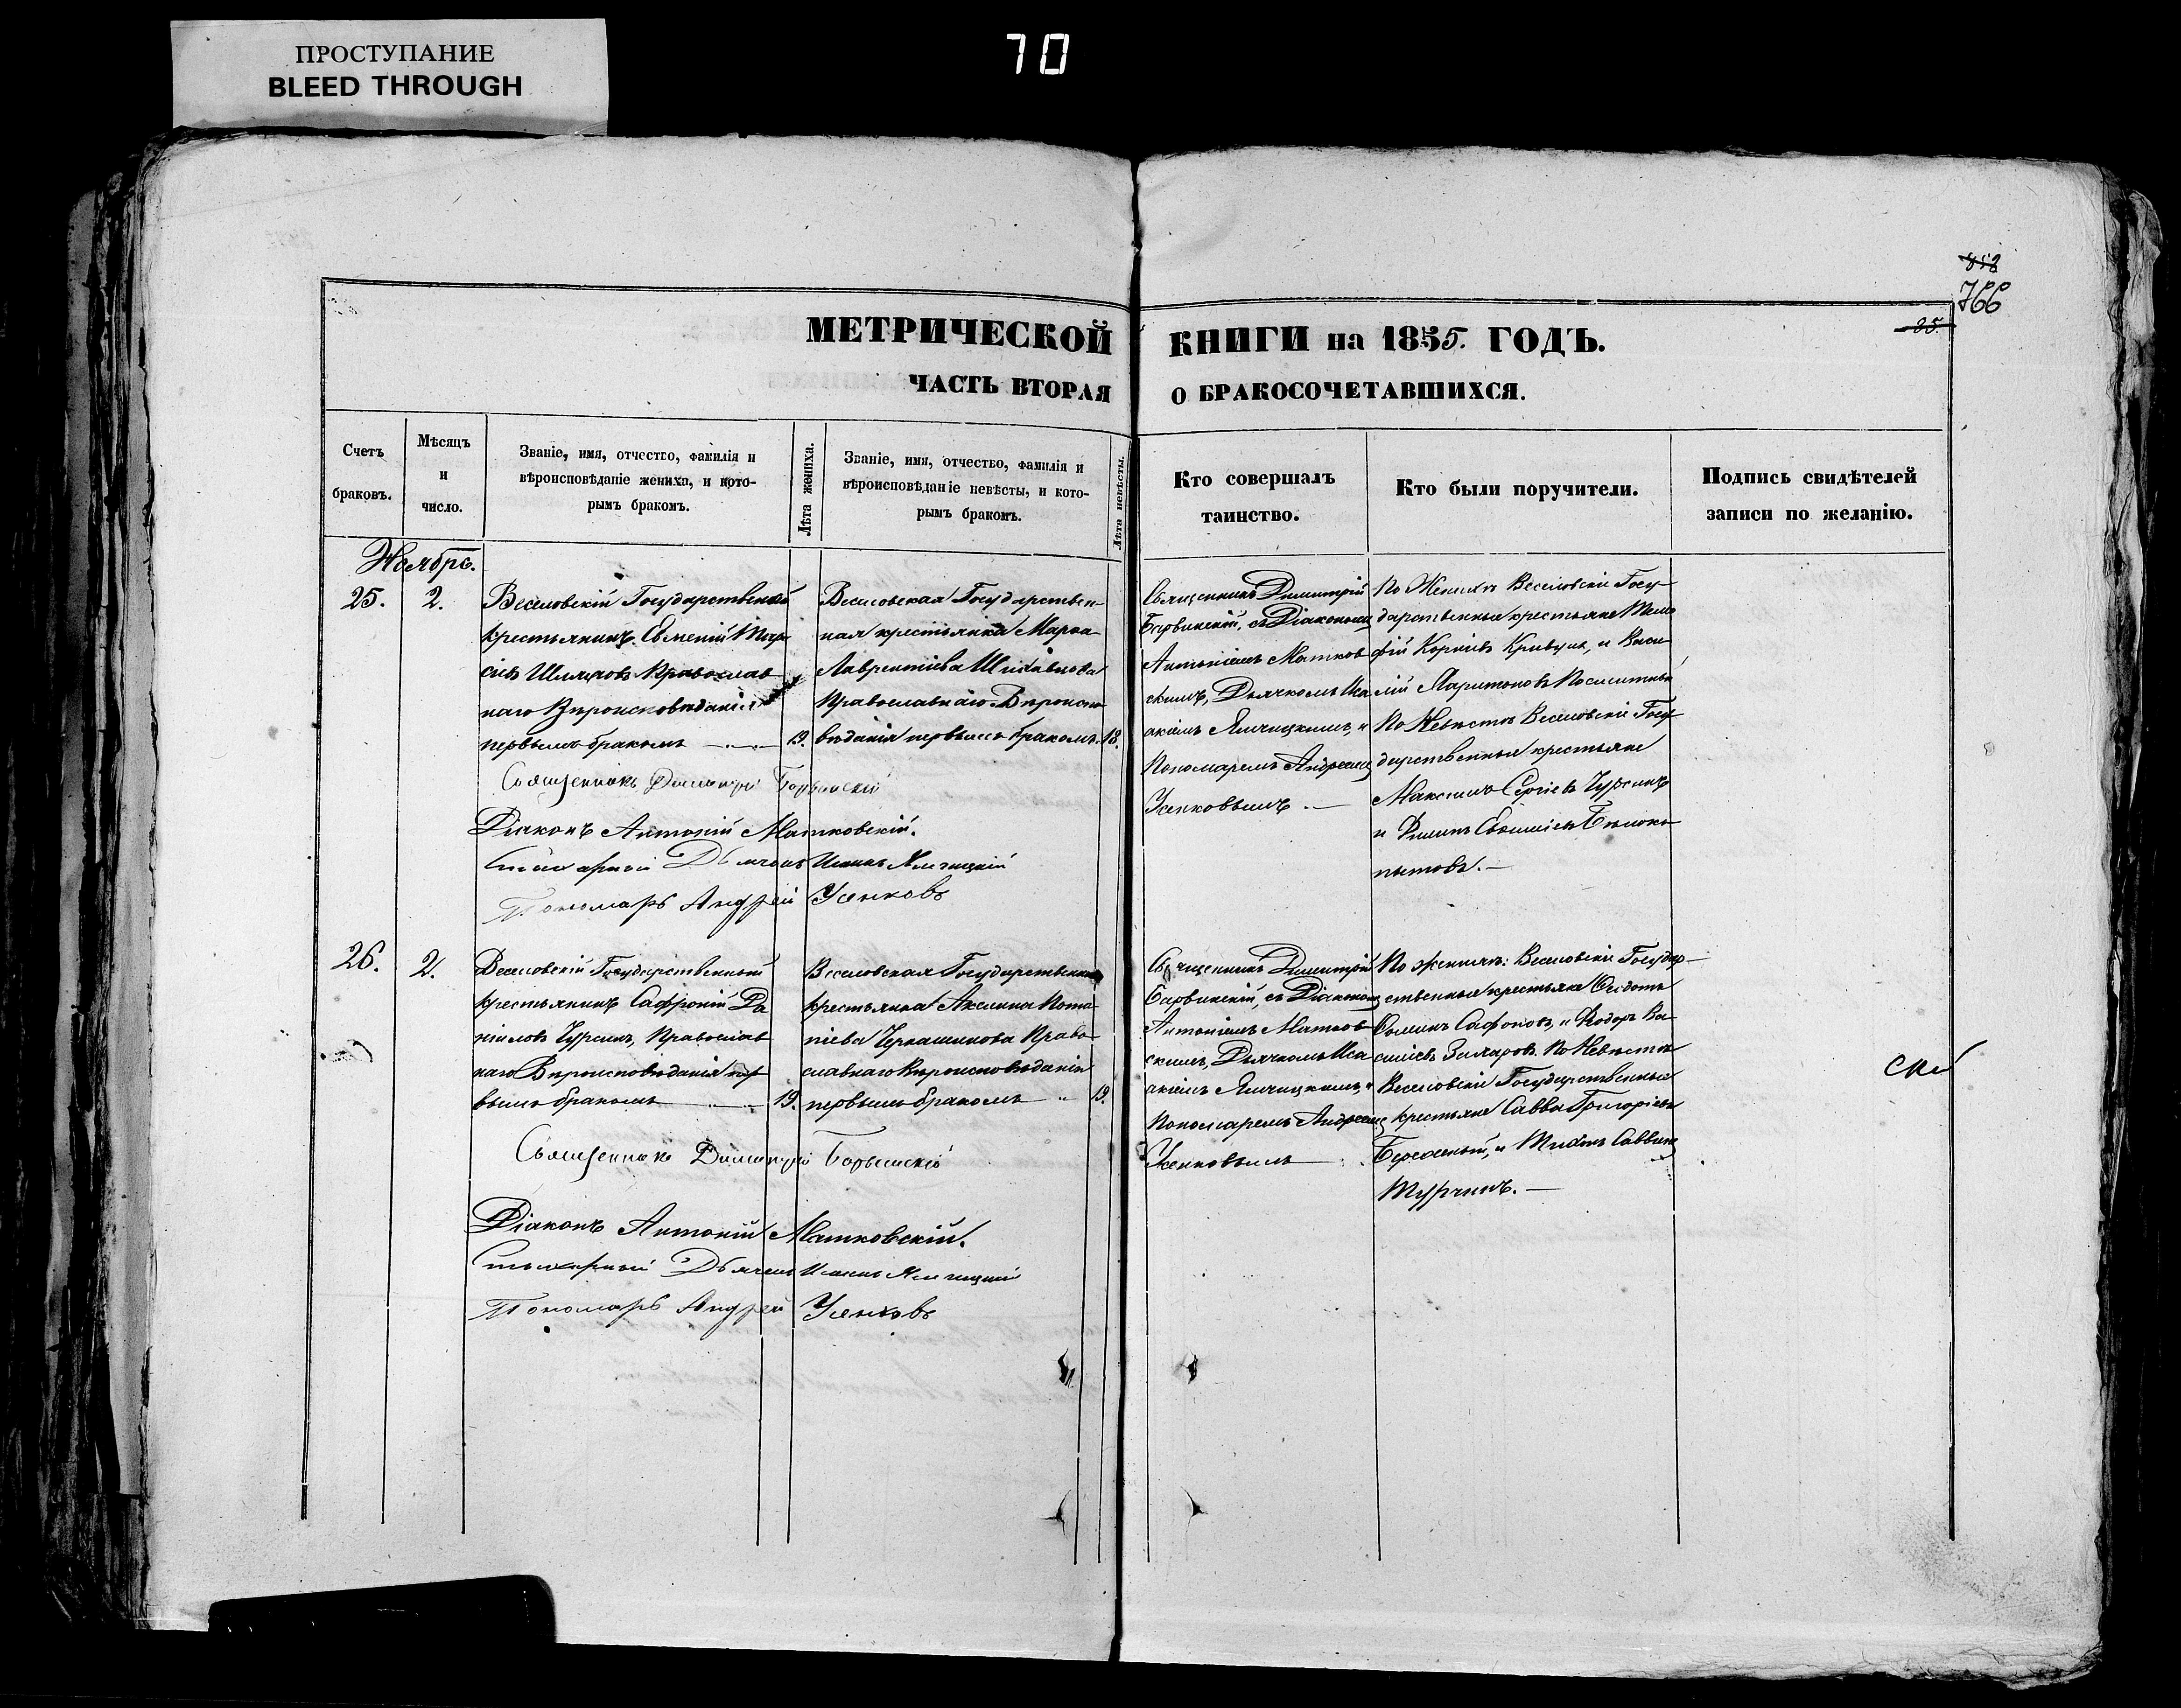 ПРОСТУПАНИЕ
BLEED THROUGH
70
852
766
25.
МЕТРИЧЕСКОЙ КНИГИ на 1855. ГОДЪ.
ЧАСТЬ ВТОРАЯ О БРАКОСОЧЕТАВШИХСЯ.
Счетъ
браковъ.
Мѣсяцъ
и
число.
Званіе, имя, отчество, фамилія и
вѣроисповѣданіе жениха, и кото-
рымъ бракомъ.
Лѣта жениха.
Званіе, имя, отчество, фамилія и
вѣроисповѣданіе невѣсты, и кото-
рымъ бракомъ.
Лѣта невѣсты.
Кто совершалъ
таинство.
Кто были поручители.
Подпись свидѣтелей
записи по желанію.
Ноябрь.
25.
2.
Веселовскій Государственный
крестьянинъ Евменій Тара
сіевъ Православ
наго Вѣроисповѣданія
первымъ бракомъ
19.
Веселовская Государствен-
ная крестьянка Марѳа
Лаврентіева
Православнаго Вѣроиспо
вѣданія первымъ бракомъ.
18.
Священникъ Димитрій
Барвинскій, съ Діакономъ
Антоніемъ Матков
скимъ, Дьячкомъ Иса
акіемъ Ямчицкимъ, и
Пономаремъ Андреемъ
Усенковымъ.
По Женихѣ Веселовскіе Госу-
дарственные крестьяне Тимо
фій Корніевъ Кривуля, и Васи
лій Харитоновъ
По Невѣстѣ Веселовскіе Госу
дарственные крестьяне
Максимъ Сергіевъ Чурсинъ
и Филипъ Бѣлоко
пытовъ.
Священникъ Димитрій Барвинскій
Діаконъ Антоній Матковскій.
Дьячекъ Исаакъ Ямчицкій
Пономарь Андрей Усенковъ
26.
2.
Веселовскій Государственный
крестьянинъ Сафроній Да
ніиловъ Чурсинъ, Православ
наго Вѣроисповѣданія пер
вымъ бракомъ
19.
Веселовская Государственная
крестьянка Акилина Пота
піева Черкашинова Право
славнаго Вѣроисповѣданія
первымъ бракомъ
19.
Священникъ Димитрій
Барвинскій, съ Діакономъ
Антоніемъ Матков
скимъ, Дьячкомъ Иса
акіемъ Ямчицкимъ, и
Пономаремъ Андреемъ
Усенковымъ
По женихѣ: Веселовскіе Государ-
ственные крестьяне Ѳедотъ
Ѳоминъ Сафоновъ, и Ѳеодоръ Ва
силіевъ Захаровъ. По Невѣстѣ
Веселовскіе Государственные
крестьяне Савва Григоріевъ
Бережный, и Титъ Саввинъ
Турчинъ.
Священникъ Димитрій Барвинскій
Діаконъ Антоній Матковскій.
Дьячекъ Исаакъ Ямчицкій
Пономарь Андрей Усенковъ
скій